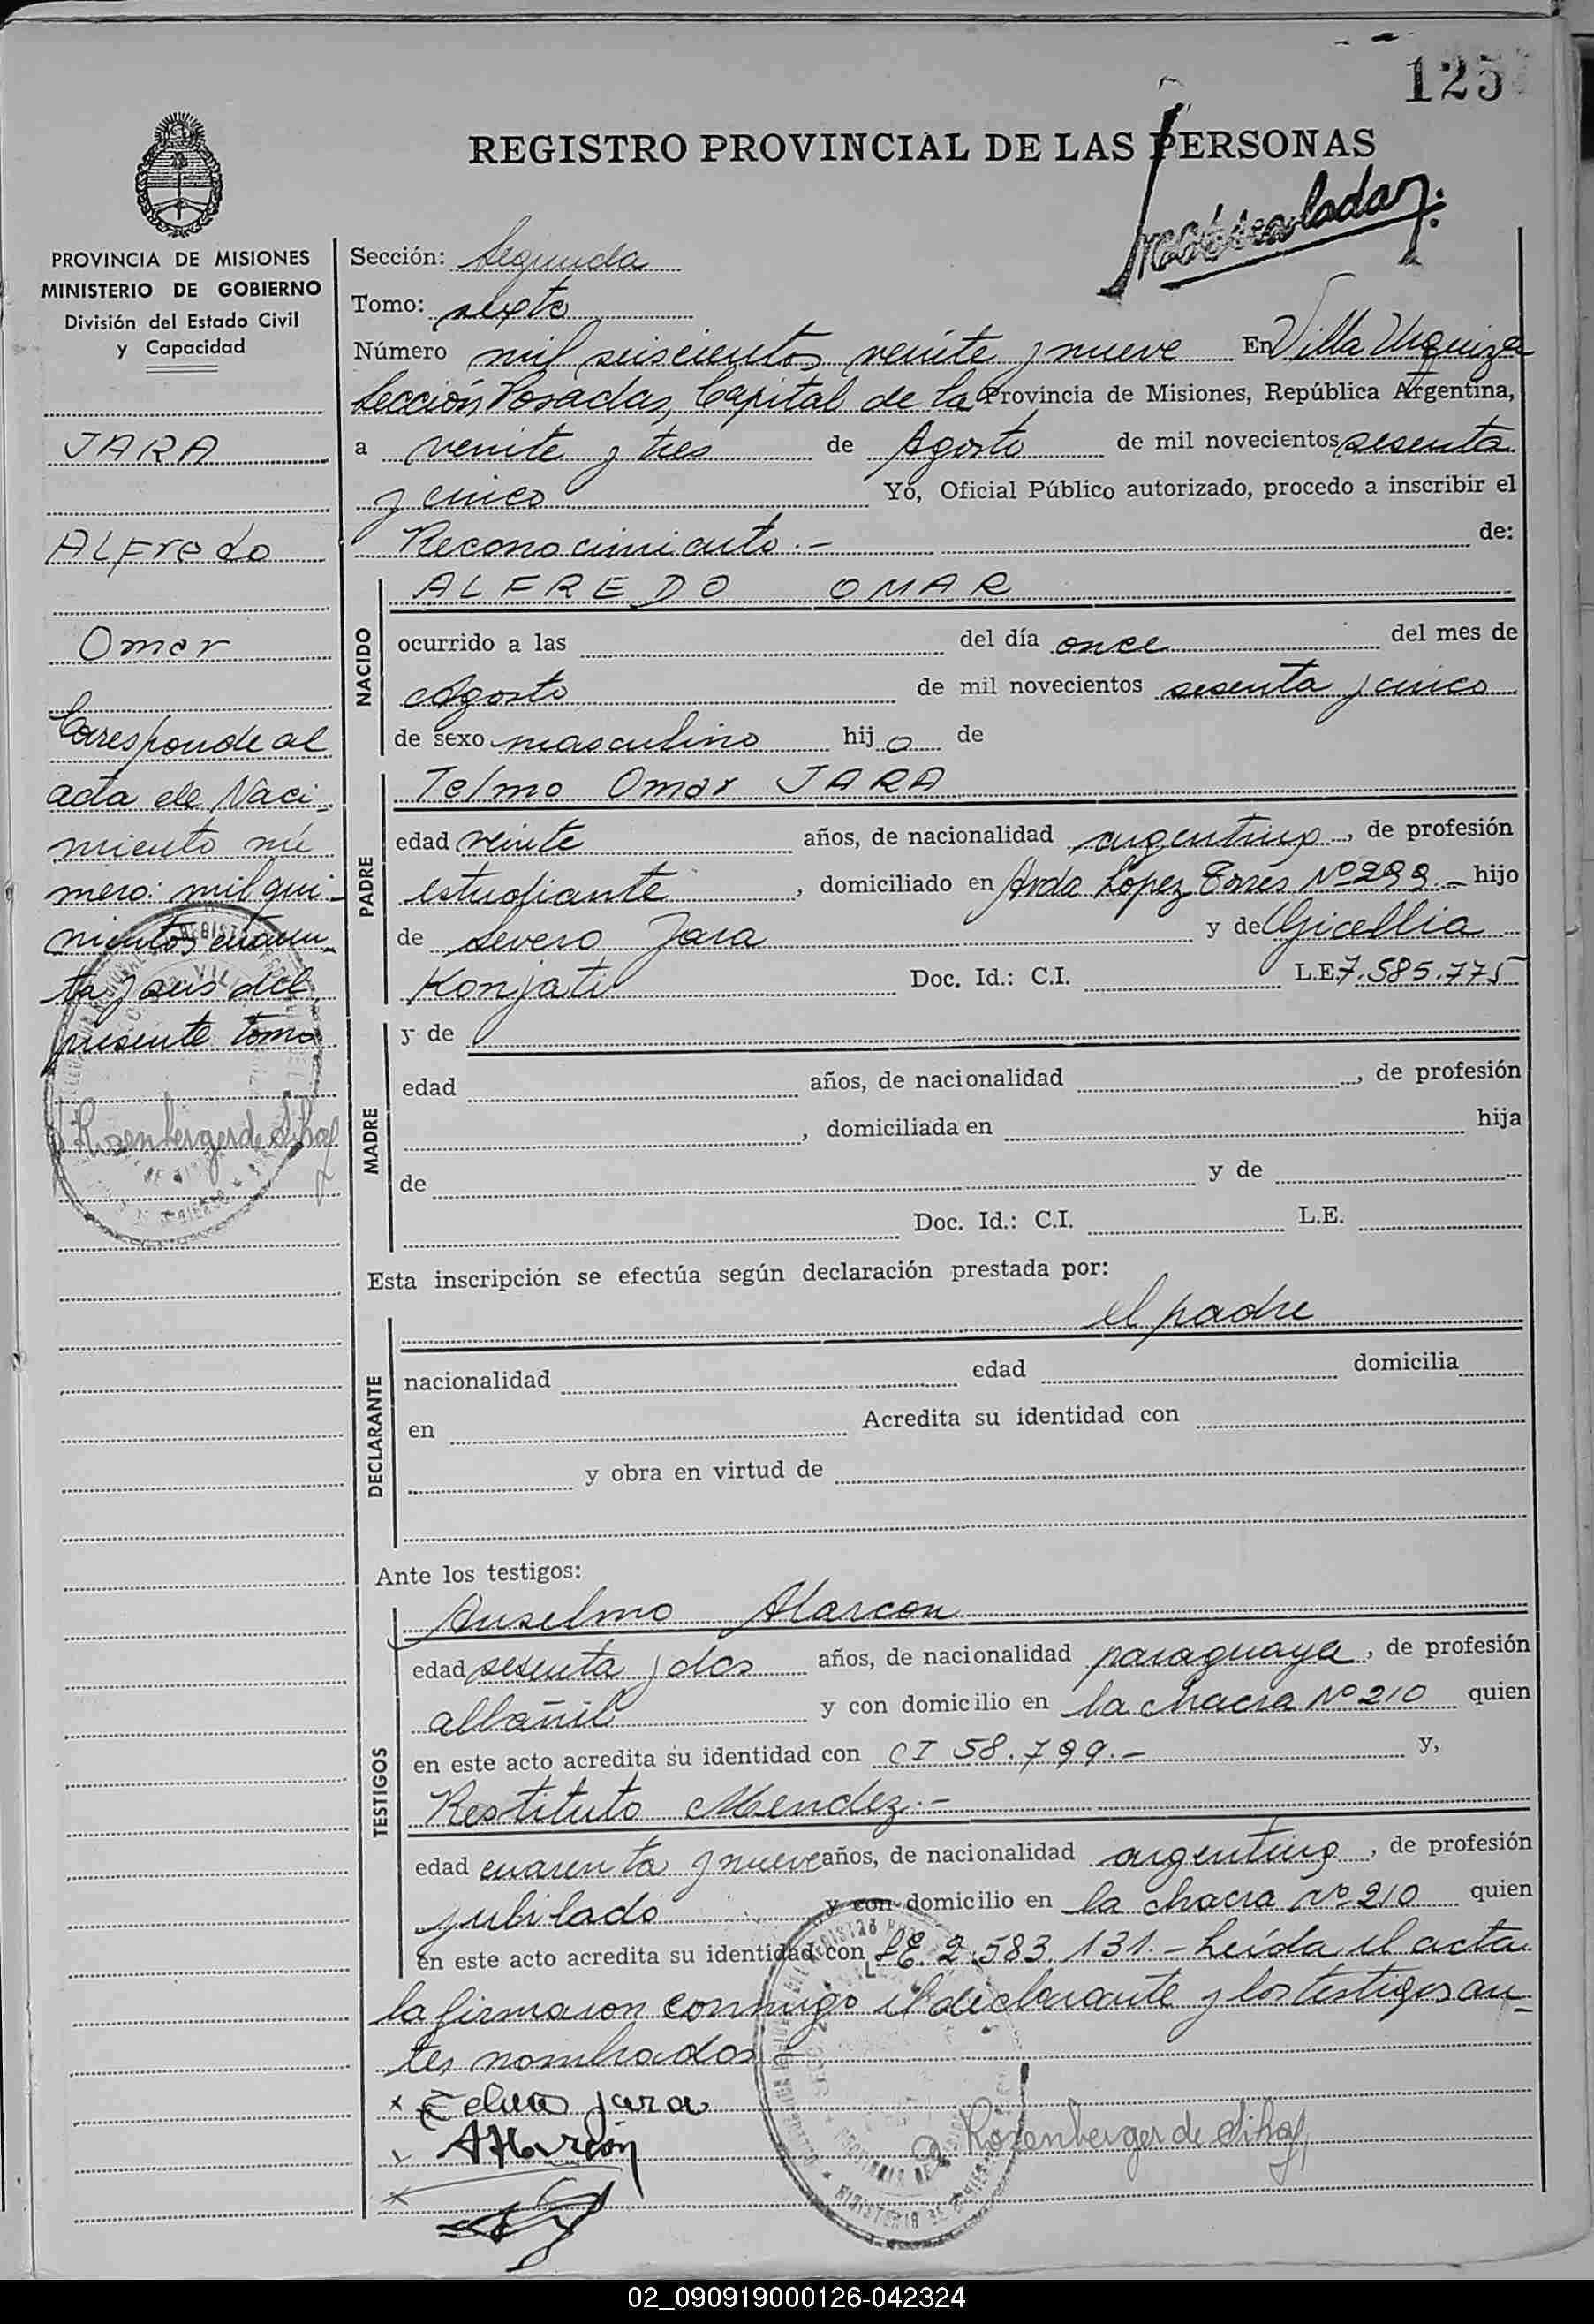 125
REGISTRO PROVINCIAL DE LAS PERSONAS
PROVINCIA DE MISIONES
MINISTERIO DE GOBIERNO
División del Estado Civil
y Capacidad
JARA
ALFredo
Omar
Corresponde al
acta de Naci-
miento nú
mero: mil qui-
nientos cuaren-
ta y seis del
presente tomo
Rosenberger de
Sección: Segunda
Tomo: sexto
Número mil seiscientos veinte y nueve En Villa Urquiza
Sección Posadas, Capital de la Provincia de Misiones, República Argentina,
a veinte y tres de Agosto de mil novecientos sesenta
y cinco Yo, Oficial Público autorizado, procedo a inscribir el
Reconocimiento.- de:
NACIDO
ALFREDO OMAR
ocurrido a las del día once del mes de
Agosto de mil novecientos sesenta y cinco
de sexo masculino hijo de
PADRE
Telmo Omar JARA
edad veinte años, de nacionalidad argentino, de profesión
estudiante, domiciliado en Avda Lopez Torres Nº 299.- hijo
de Severo Jara y de Gicellia
Konjati Doc. Id.: C.I. L.E. 7.585.775
MADRE
y de
edad años, de nacionalidad , de profesión
, domiciliada en hija
de y de
Doc. Id.: C.I. L.E.
Esta inscripción se efectúa según declaración prestada por:
el padre
DECLARANTE
nacionalidad edad domicilia
en Acredita su identidad con
y obra en virtud de
Ante los testigos:
TESTIGOS
Anselmo Alarcon
edad sesenta y dos años, de nacionalidad paraguaya, de profesión
albañil y con domicilio en la chacra Nº 210 quien
en este acto acredita su identidad con CI 58.799.- y,
Restituto Mendez.-
edad cuarenta y nueve años, de nacionalidad argentino, de profesión
jubilado y con domicilio en la chacra Nº 210 quien
en este acto acredita su identidad con LE. 2.583.131.- Leída el acta
la firmaron conmigo el declarante y los testigos an-
tes nombrados.-
Jara
AAlarcón
Rosenberger de
02_090919000126-042324